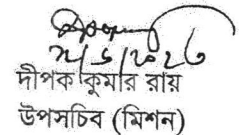 দীপক কুমার রায়
উপসচিব (মিশন)